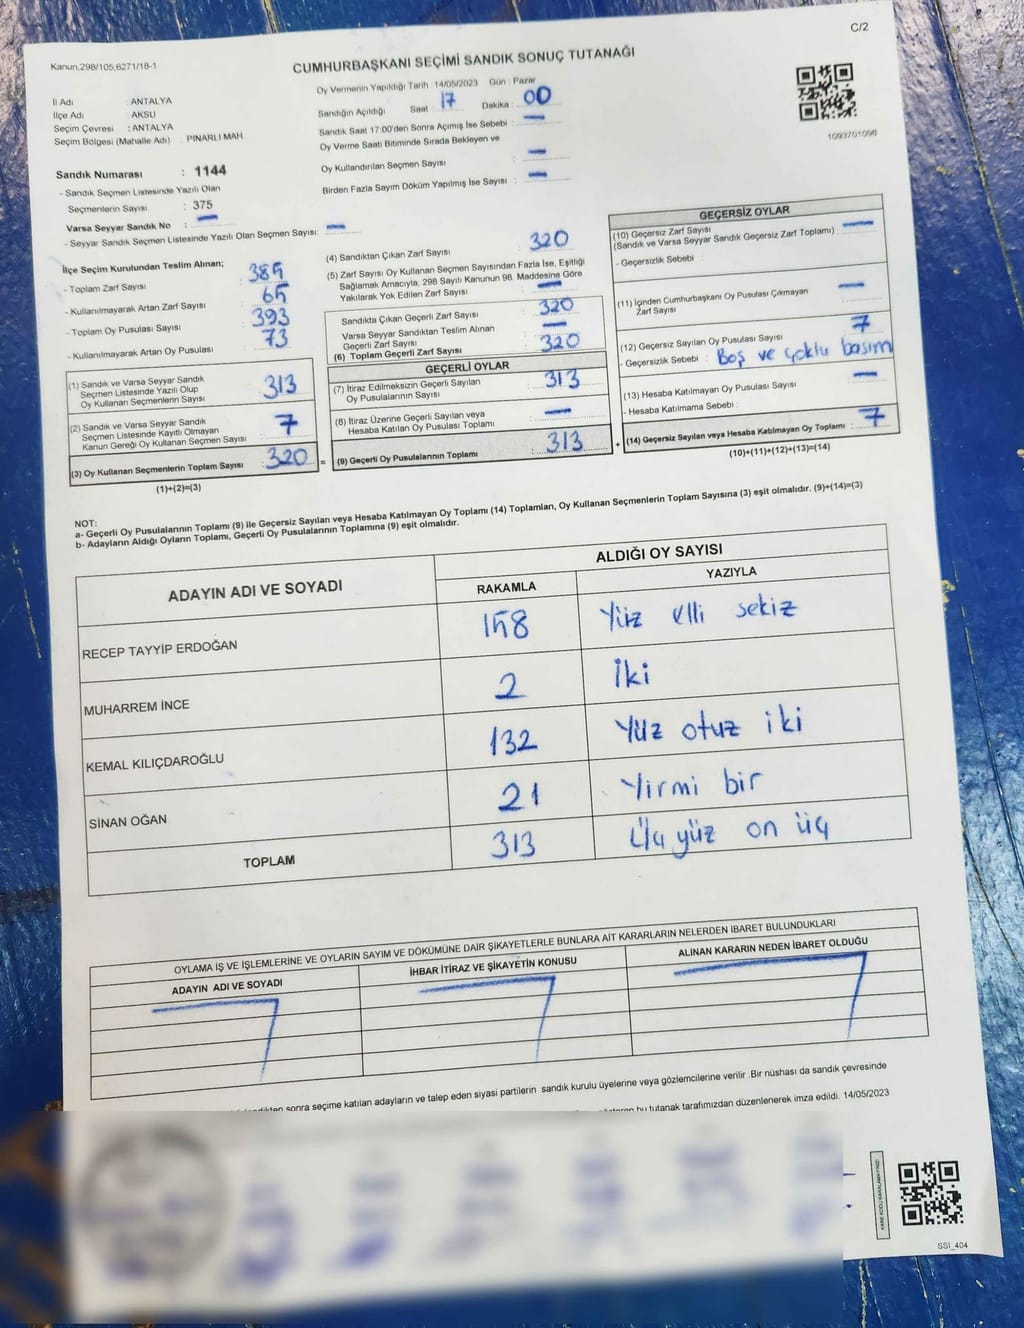 C/2
Kanun,298/105,6271/18-1
CUMHURBAŞKANI SEÇİMİ SANDIK SONUÇ TUTANAĞI
İl Adı : ANTALYA
İlçe Adı : AKSU
Seçim Çevresi : ANTALYA
Seçim Bölgesi (Mahalle Adı) : PINARLI MAH.
Sandık Numarası : 1144
- Sandık Seçmen Listesinde Yazılı Olan
Seçmenlerin Sayısı : 375
Varsa Seyyar Sandık No : —
- Seyyar Sandık Seçmen Listesinde Yazılı Olan Seçmen Sayısı: —
Oy Vermenin Yapıldığı Tarih : 14/05/2023 Gün : Pazar
Sandığın Açıldığı Saat : 17 Dakika : 00
Sandık Saat 17:00'den Sonra Açımış İse Sebebi : —
Oy Verme Saati Bitiminde Sırada Bekleyen ve
Oy Kullandırılan Seçmen Sayısı : —
Birden Fazla Sayım Döküm Yapılmış İse Sayısı : —
1093701098
İlçe Seçim Kurulundan Teslim Alınan;
- Toplam Zarf Sayısı : 385
- Kullanılmayarak Artan Zarf Sayısı : 65
- Toplam Oy Pusulası Sayısı : 393
- Kullanılmayarak Artan Oy Pusulası : 73
(1) Sandık ve Varsa Seyyar Sandık
Seçmen Listesinde Yazılı Olup
Oy Kullanan Seçmenlerin Sayısı : 313
(2) Sandık ve Varsa Seyyar Sandık
Seçmen Listesinde Kayıtlı Olmayan
Kanun Gereği Oy Kullanan Seçmen Sayısı : 7
(3) Oy Kullanan Seçmenlerin Toplam Sayısı : 320 =
(1)+(2)=(3)
(4) Sandıktan Çıkan Zarf Sayısı : 320
(5) Zarf Sayısı Oy Kullanan Seçmen Sayısından Fazla İse, Eşitliği
Sağlamak Amacıyla; 298 Sayılı Kanunun 98. Maddesine Göre
Yakılarak Yok Edilen Zarf Sayısı : —
Sandıkta Çıkan Geçerli Zarf Sayısı : 320
Varsa Seyyar Sandıktan Teslim Alınan
Geçerli Zarf Sayısı : —
(6) Toplam Geçerli Zarf Sayısı : 320
GEÇERLİ OYLAR
(7) İtiraz Edilmeksizin Geçerli Sayılan
Oy Pusulalarının Sayısı : 313
(8) İtiraz Üzerine Geçerli Sayılan veya
Hesaba Katılan Oy Pusulası Toplamı : —
(9) Geçerli Oy Pusulalarının Toplamı : 313 +
GEÇERSİZ OYLAR
(10) Geçersiz Zarf Sayısı
(Sandık ve Varsa Seyyar Sandık Geçersiz Zarf Toplamı) : —
- Geçersizlik Sebebi :
(11) İçinden Cumhurbaşkanı Oy Pusulası Çıkmayan
Zarf Sayısı : —
(12) Geçersiz Sayılan Oy Pusulası Sayısı : 7
- Geçersizlik Sebebi : Boş ve çoklu basım
(13) Hesaba Katılmayan Oy Pusulası Sayısı : —
- Hesaba Katılmama Sebebi :
(14) Geçersiz Sayılan veya Hesaba Katılmayan Oy Toplamı : 7
(10)+(11)+(12)+(13)=(14)
NOT:
a- Geçerli Oy Pusulalarının Toplamı (9) ile Geçersiz Sayılan veya Hesaba Katılmayan Oy Toplamı (14) Toplamları, Oy Kullanan Seçmenlerin Toplam Sayısına (3) eşit olmalıdır. (9)+(14)=(3)
b- Adayların Aldığı Oyların Toplamı, Geçerli Oy Pusulalarının Toplamına (9) eşit olmalıdır.
ADAYIN ADI VE SOYADI
ALDIĞI OY SAYISI
RAKAMLA YAZIYLA
RECEP TAYYİP ERDOĞAN 158 Yüz elli sekiz
MUHARREM İNCE 2 İki
KEMAL KILIÇDAROĞLU 132 Yüz otuz iki
SİNAN OĞAN 21 Yirmi bir
TOPLAM 313 Üç yüz on üç
OYLAMA İŞ VE İŞLEMLERİNE VE OYLARIN SAYIM VE DÖKÜMÜNE DAİR ŞİKAYETLERLE BUNLARA AİT KARARLARIN NELERDEN İBARET BULUNDUKLARI
ADAYIN ADI VE SOYADI İHBAR İTİRAZ VE ŞİKAYETİN KONUSU ALINAN KARARIN NEDEN İBARET OLDUĞU
sonra seçime katılan adayların ve talep eden siyasi partilerin sandık kurulu üyelerine veya gözlemcilerine verilir .Bir nüshası da sandık çevresinde
bu tutanak tarafımızdan düzenlenerek imza edildi. 14/05/2023
SSI_404